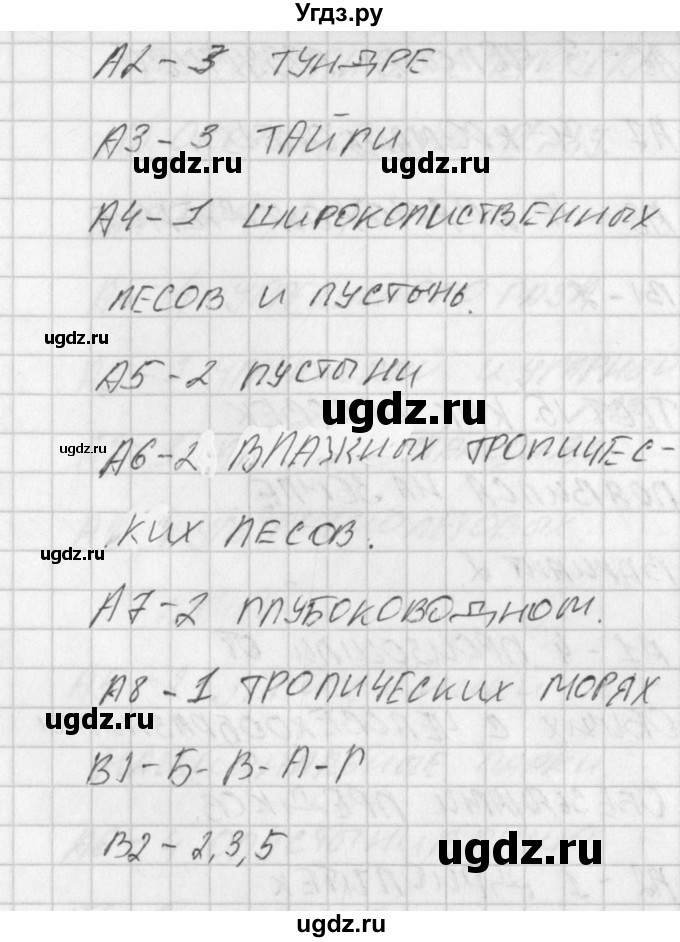 Угдз.ру
А2 - 3 ТУНДРЕ
А3 - 3 ТАЙГИ
ugdz.ru ugdz.ru
А4 - 1 ШИРОКОЛИСТВЕННЫХ
ЛЕСОВ И ПУСТЫНЬ.
ugdz.ru
А5 - 2 ПУСТЫНИ
ugdz.ru
ugdz.ru
А6 - 2 ВЛАЖНЫХ ТРОПИЧЕС-
КИХ ЛЕСОВ.
ugdz.ru
А7 - 2 ГЛУБОКОВОДНОМ.
А8 - 1 ТРОПИЧЕСКИХ МОРЯХ
ugdz.ru
В1 - Б - В - А - Г
В2 - 2, 3, 5
ugdz.ru
ugdz.ru